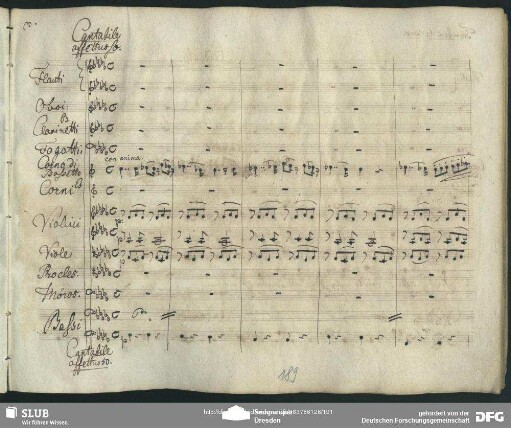 Cantabile
affettuoso.
Flauti
Oboi
B
Clarinetti
Fagotti
con anima.
Corno di
Bassetto
Corni
Violini
Viole
Procles.
Bassi
Cantabile
affettuoso.
189
SLUB
Wir führen Wissen.
Dresden
gefördert von der
Deutschen Forschungsgemeinschaft
DFG